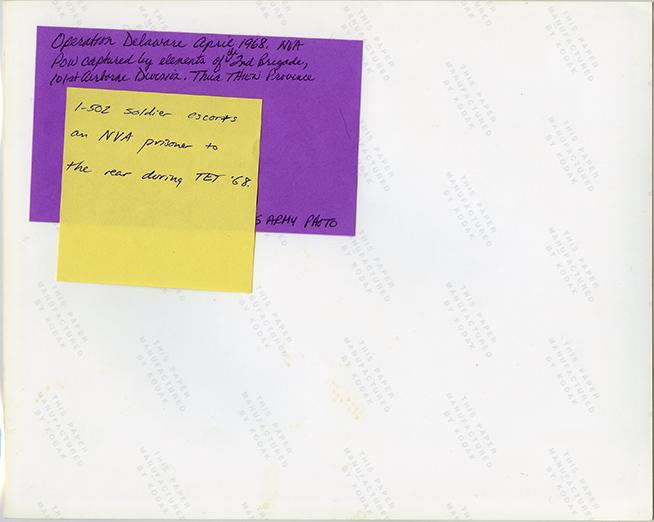 Operation Delaware April 1968. NVA
POW captured by elements of the 2nd Brigade,
101st Airborne Division. Thua THIEN Province
1-502 soldier escorts
an NVA prisoner to
the rear during TET '68.
S ARMY PHOTO
THIS PAPER
MANUFACTURED
BY KODAK